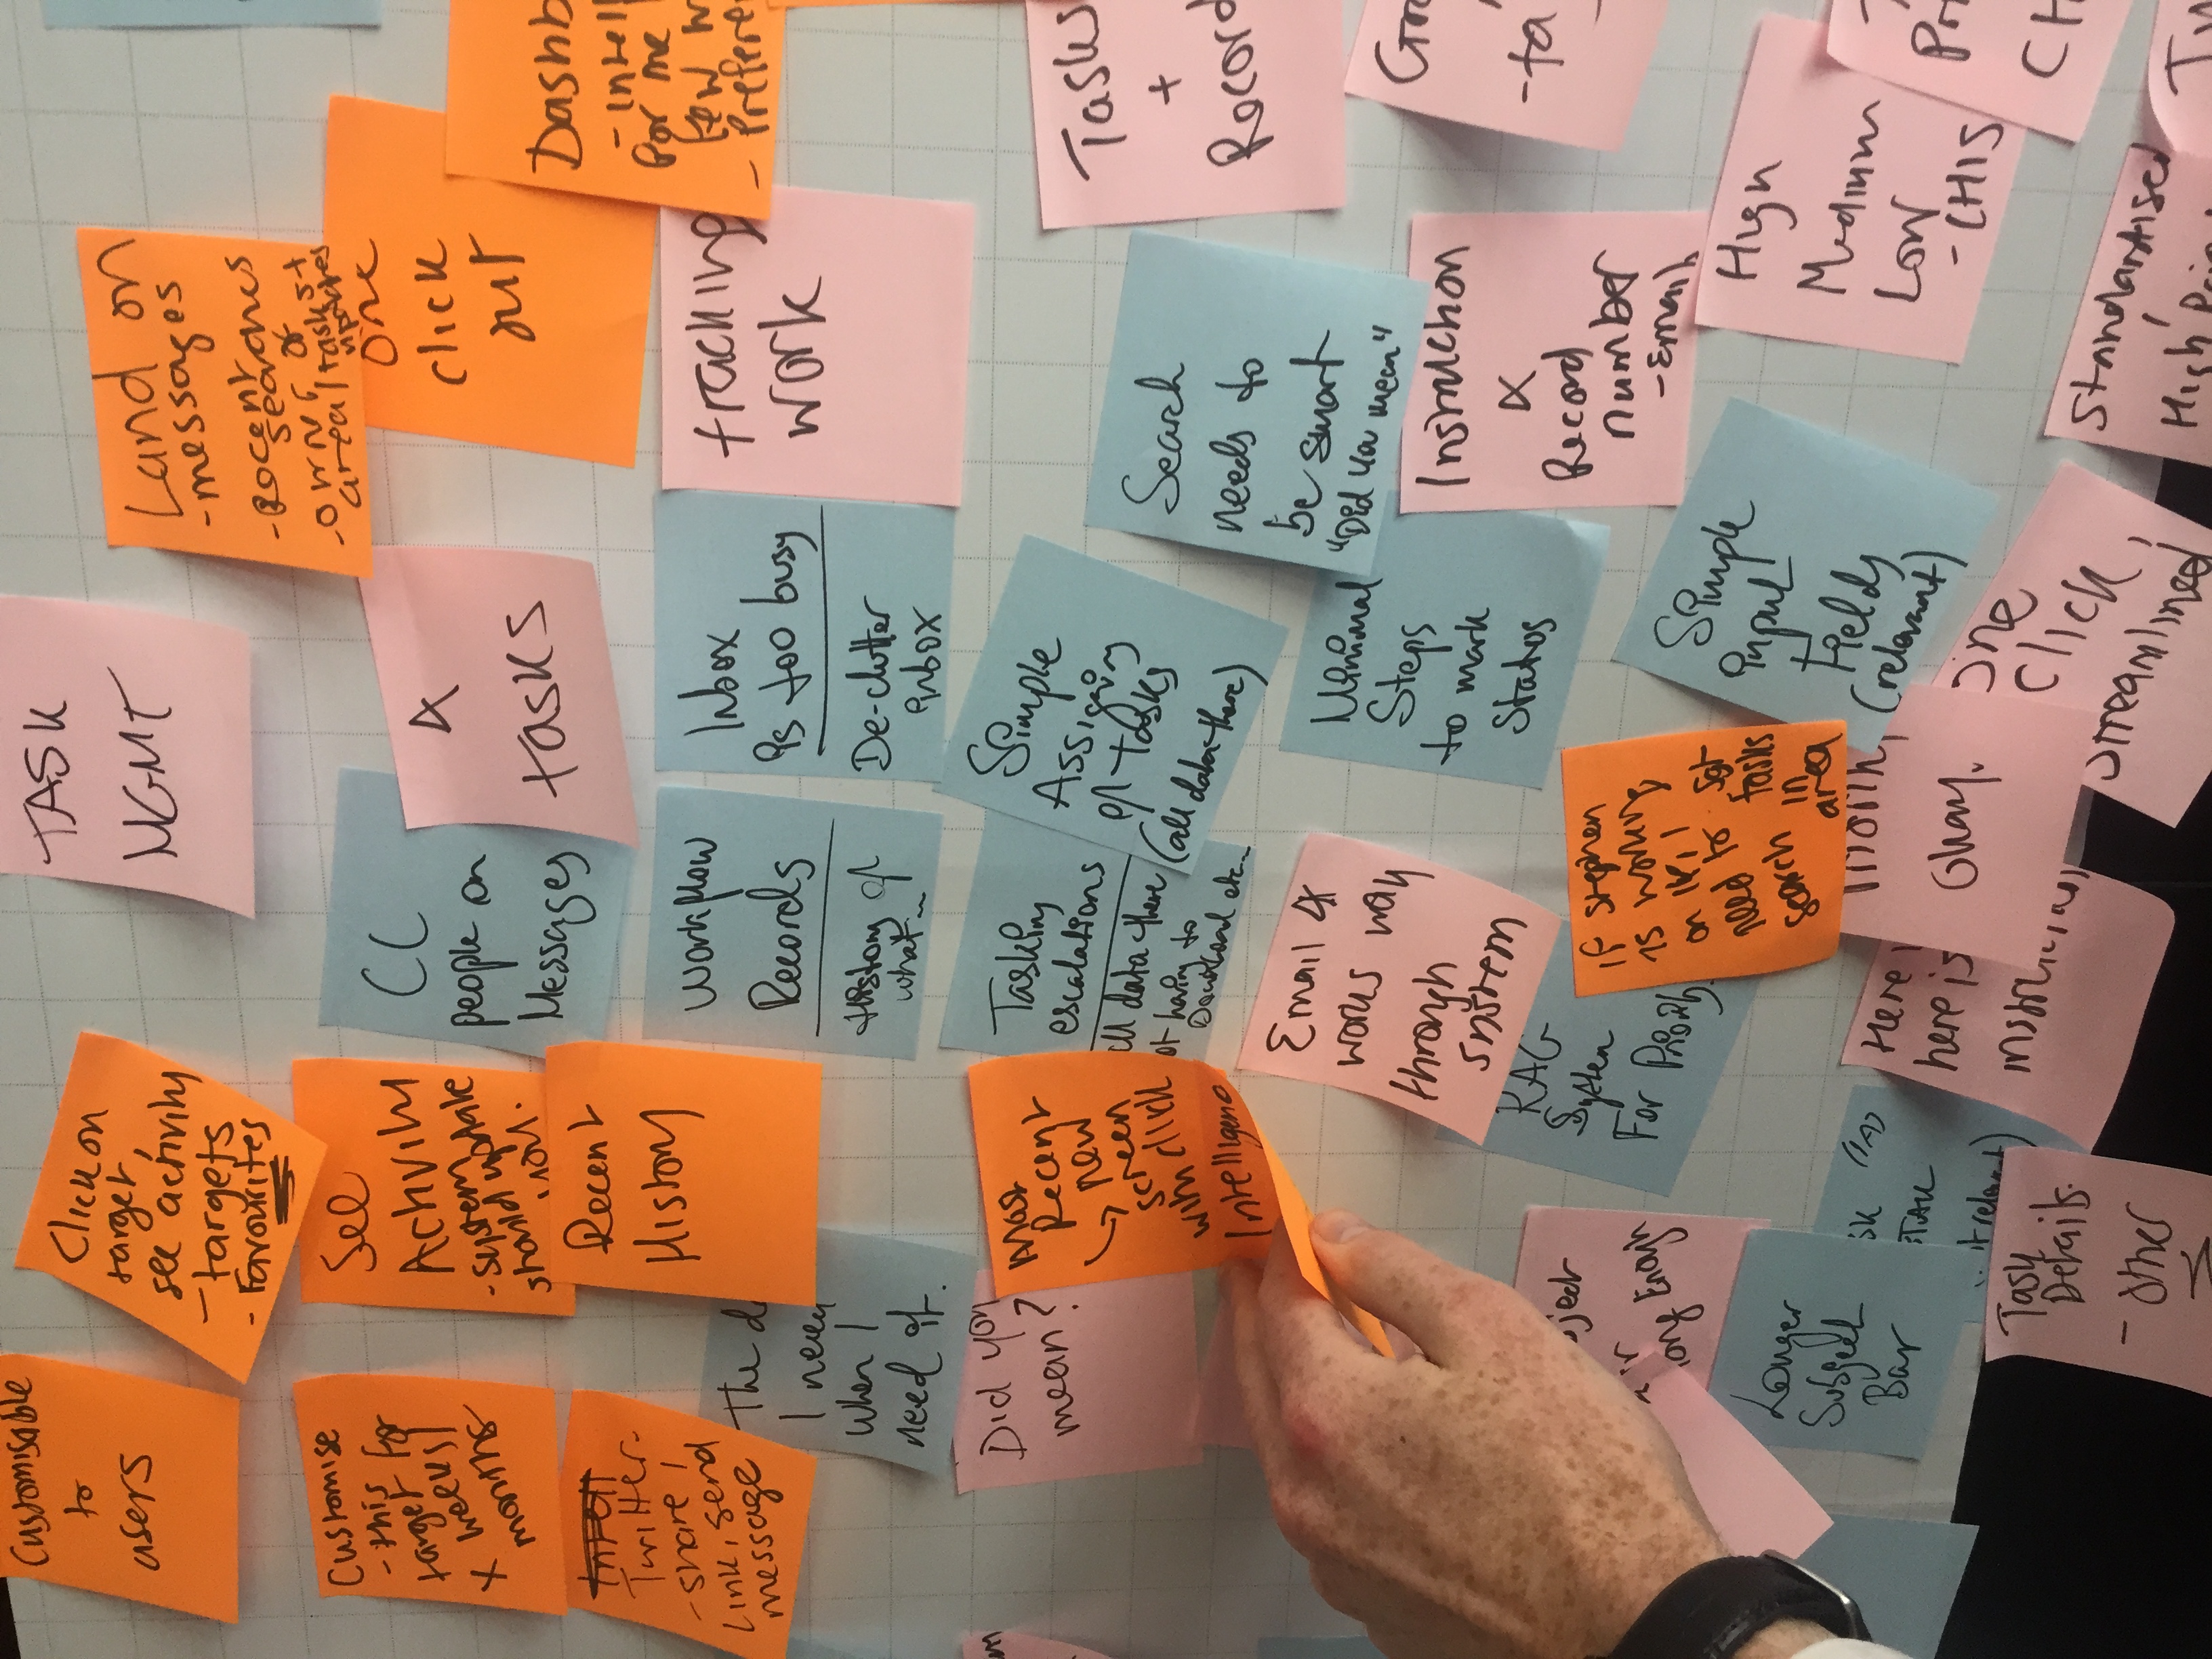 Customisable
to
users
Click on
target,
see activity
- targets
- Favourites
TASK
MGMT
Land on
- messages
- Recent
searches
- owner of
area/tasks +
updates
Customise
- this
target for
x weeks/
months
See
Activity
- system
should update
you.
CC
people on
Messages
4
tasks
One
click
out
Dashb
- Intell
for me
few w
- Prefere
Twitter-
- share
link, send
message
Recent
History
The da
I need
when I
need it.
Workflow
Records
History of
what...
Inbox
is too busy
De-clutter
inbox
tracking
work
Did you
mean?
Most
Recent
↳ new
screen
with click
Intelligence
Tasking
escalations
all data there
not having to
Download etc...
Simple
Assigning
of tasks
(all data there)
Search
needs to
be smart
"Did you mean"
Tasks
+
Record
Email
works way
through
system
Minimal
Steps
to mark
Status
Instruction
Record
number
- Email
- ta
ject
long Enough
RAG
System
For Priority.
if Stephen
is working
on it, I
need to
search
tasks
in
area
Simple
input
Fields
(relevant)
High
Medium
Low
- CHIS
Longer
Subject
Bar
(IA)
Here
here is
Okay.
One
Click,
Streamlined
Task
Details.
- other
Standardised
High
CH